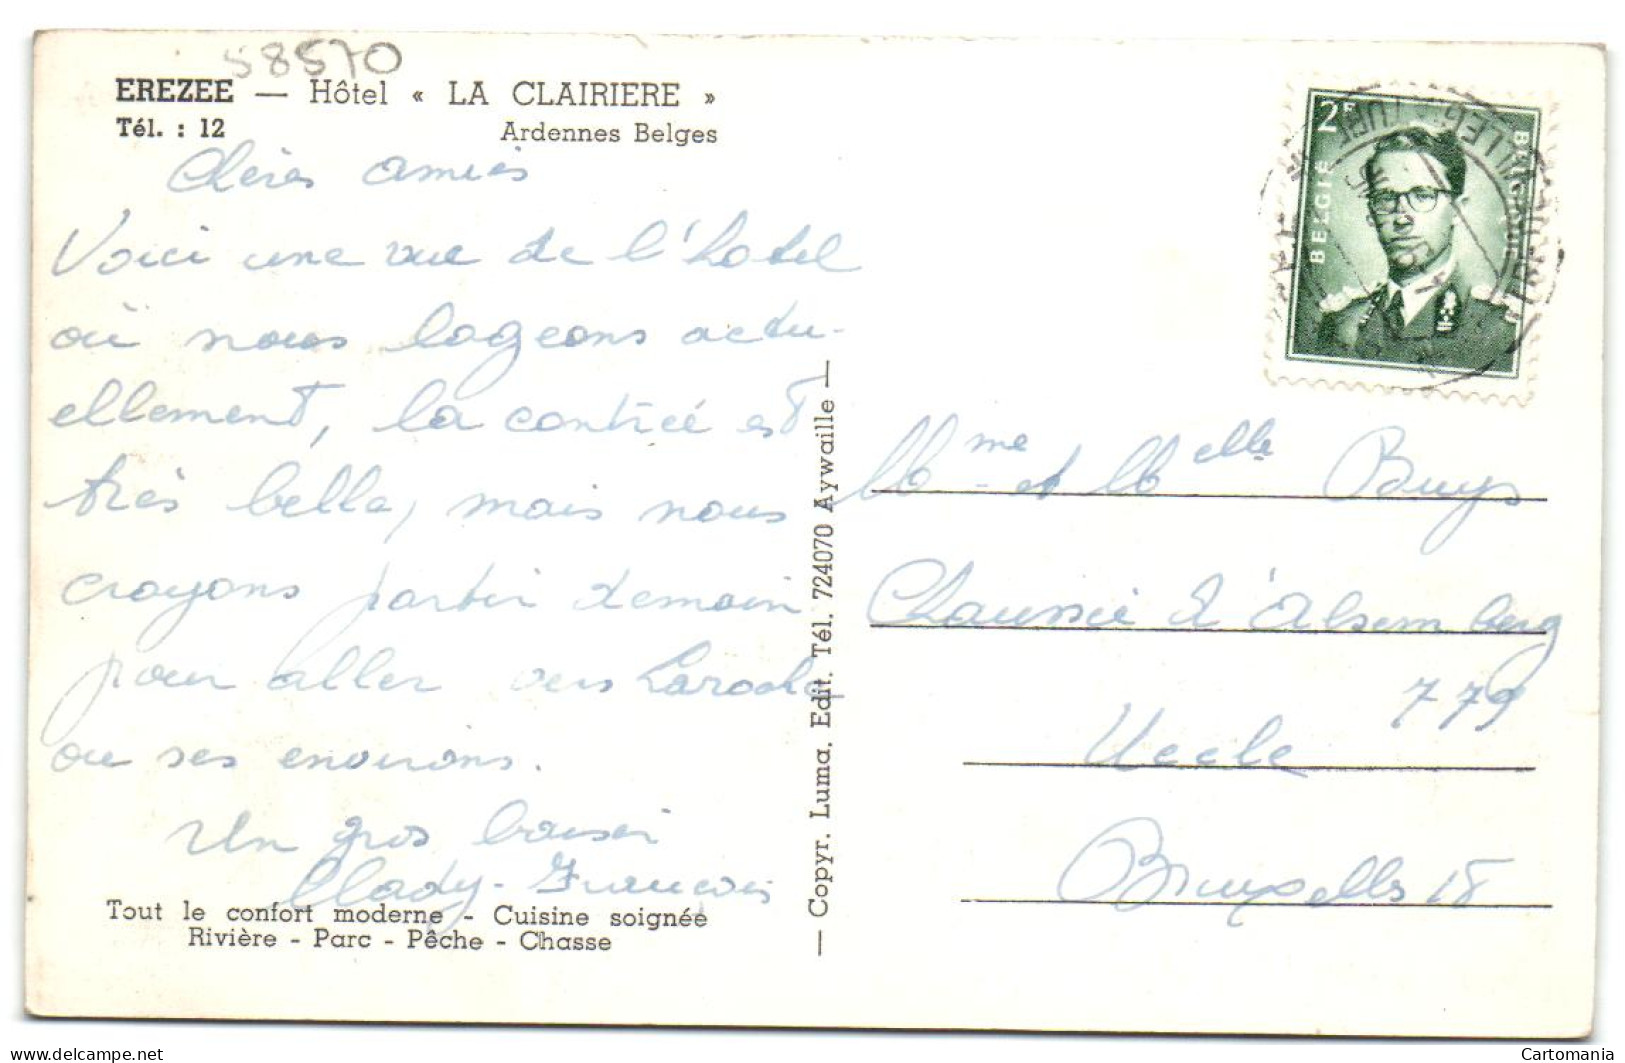 58570
EREZEE — Hôtel « LA CLAIRIERE »
Tél. : 12 Ardennes Belges
Chères amies
Voici une vue de l'hotel
où nous logeons actu-
ellement, la contrée est
très belle, mais nous
croyons partir demain
pour aller vers Laroche
ou ses environs.
Un gros baiser
Clady - François
Tout le confort moderne - Cuisine soignée
Rivière - Parc - Pêche - Chasse
— Copyr. Luma. Edit. Tél. 724070 Aywaille —
2F
BELGIË
BELGIQUE
Mme et Melle Buys
Chaussée d'Alsemberg
779
Uccle
Bruxelles 18
www.delcampe.net
Cartomania